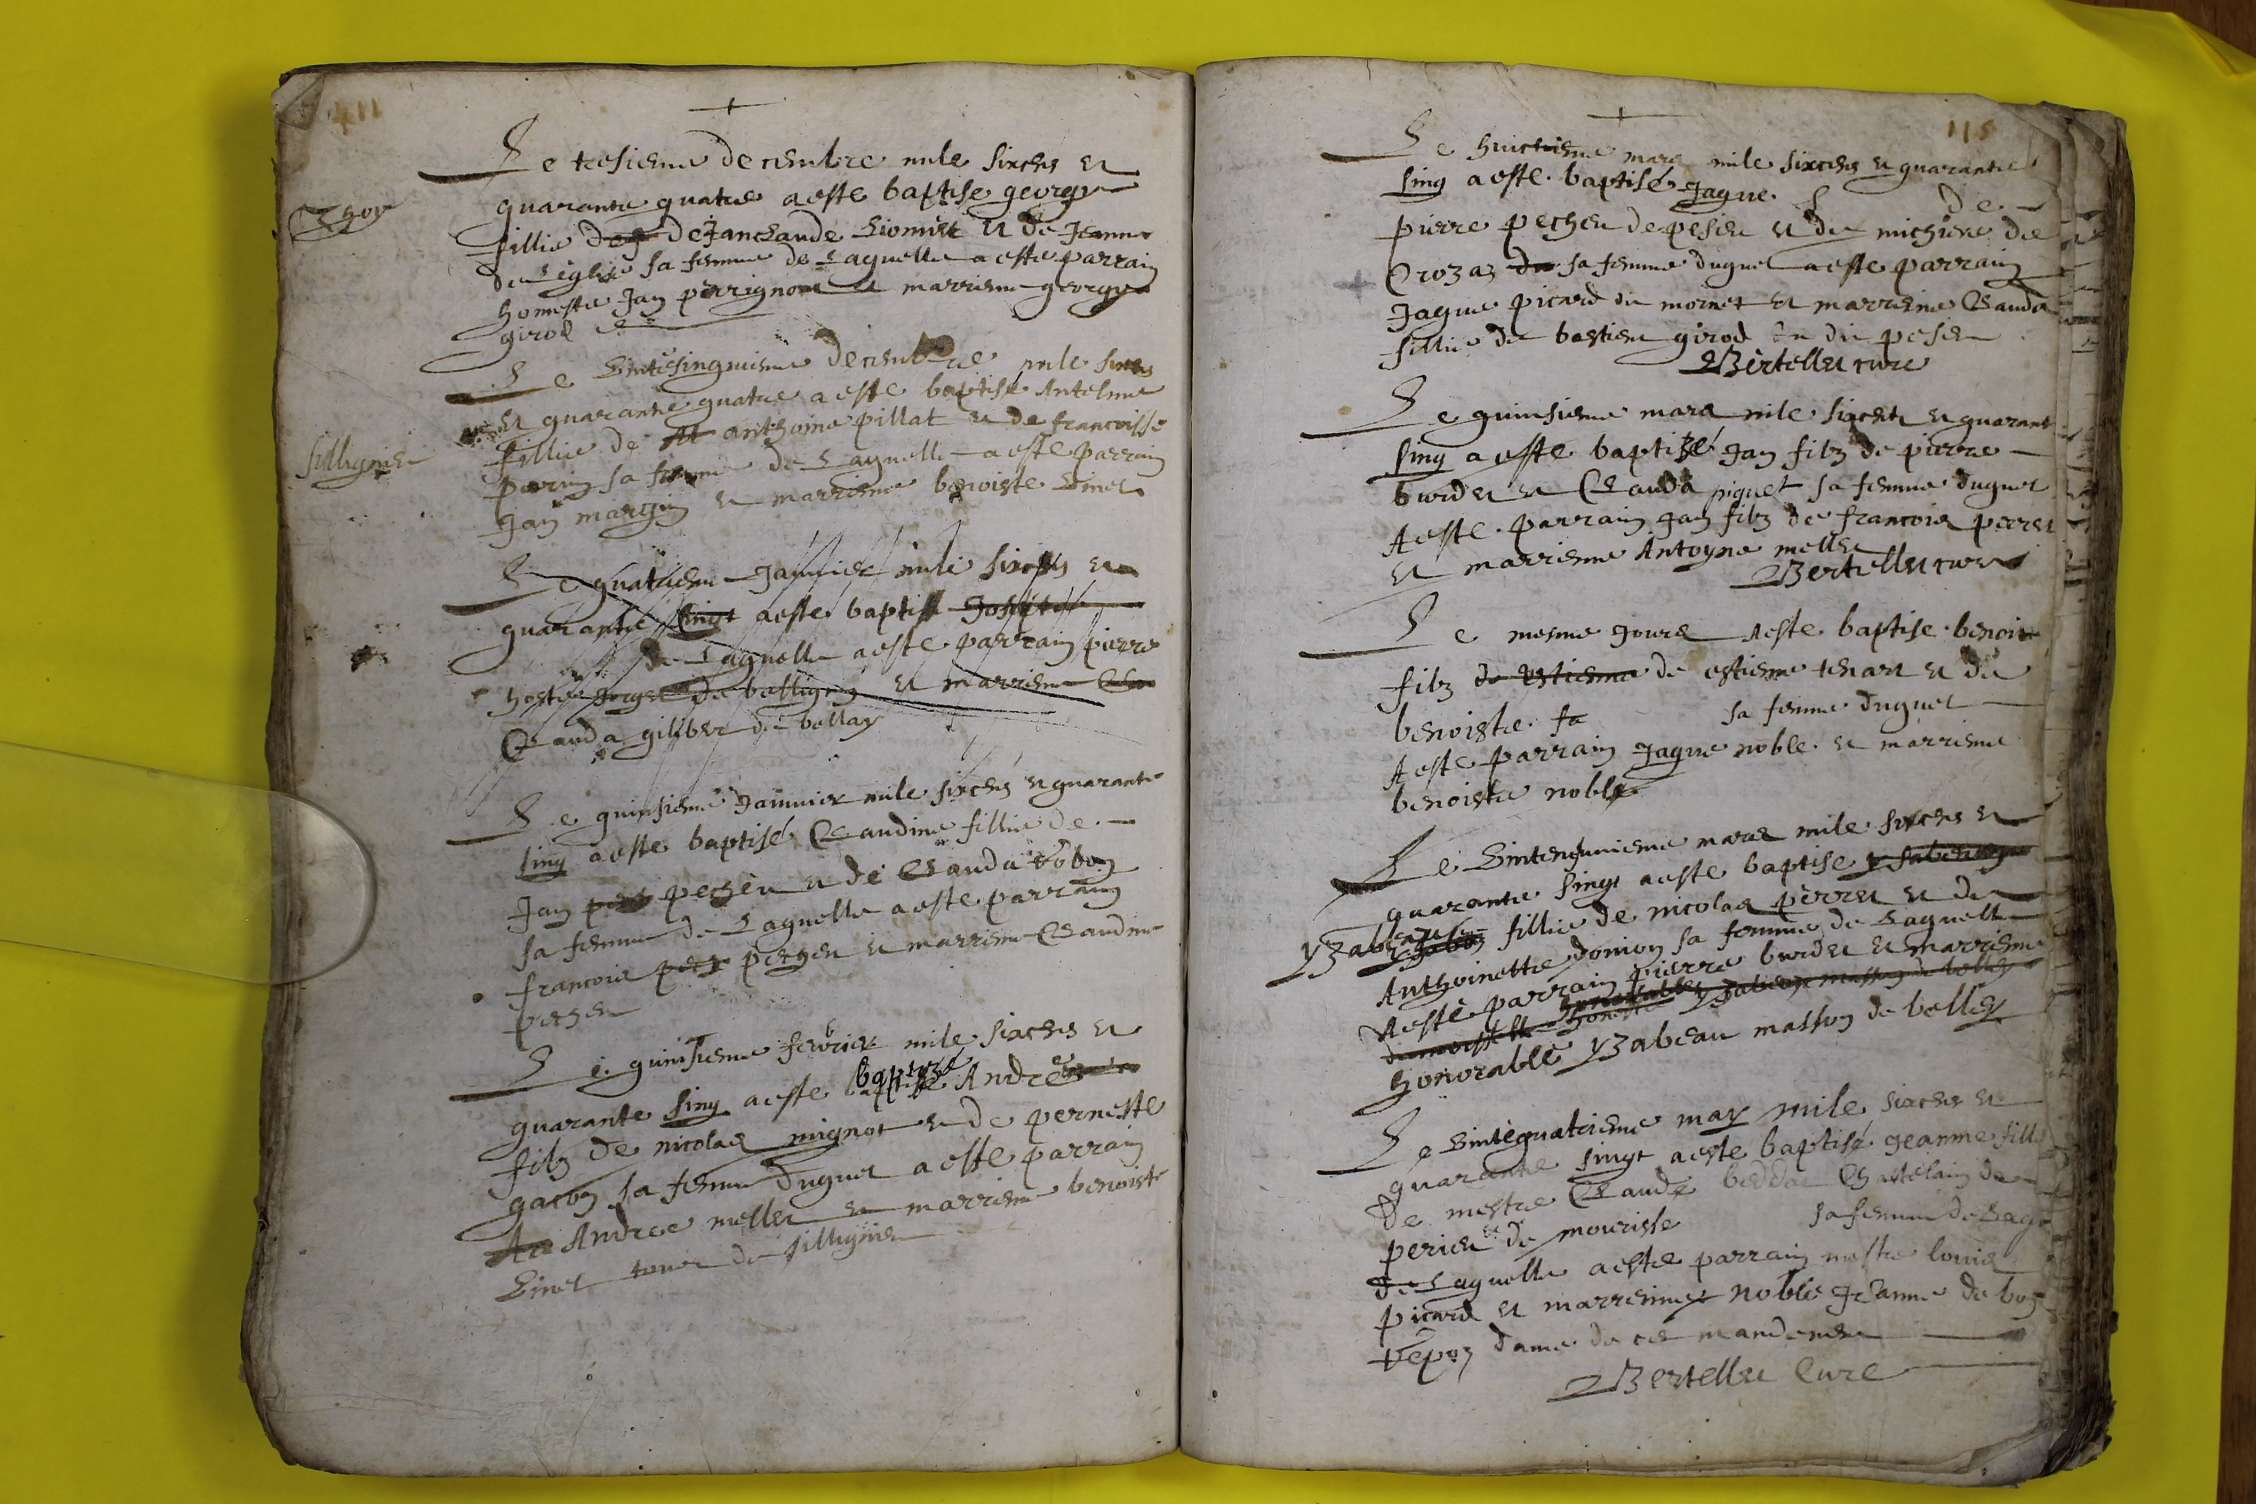 411
+
Le tresiesme decembre mile sixcens et
quarante quatre a este baptise george
thoy
fillie de Janclaude biomier et de Jeanne
de leglise sa femme de laquelle a este parrain
honeste Jan perrignon et marrienne george
girod
Le vintesinquiesme decembre mile sixcens
et quarante quatre a este baptise Antelme
fillie de anthoine pillat et de francoisse
sillignieu
perrin sa femme de laquelle a este parrain
Jan margin et marrienne benoiste vinet
Le quatriesme Janvier mile sixcens et
quarante sinq a este baptise
de laquelle a este parrain pierre
de belligny et marrienne
Clauda giliber de bellay
Le quinsiesme Janvier mile sixcens et quarante
sinq a este baptisé Claudine fillie de
Jan pecheu et de Clauda
sa femme de laquelle a este parrain
francois pecheu et marrienne Claudine
pecheu
Le quinsiesme febvrier mile sixcens et
quarante sinq a este baptizé Andre
filz de nicolas mignot et de perneste
gacon sa femme duquel a este parrain
Andree mellet et marrienne benoiste
vinet de sillignieu
115
+
Le huictiesme mars mile sixcens et quarante
sinq a este baptisé Jaque f de
pierre pecheu de pesieu et de michiere de
Crozaz sa femme duquel a este parrain
Jaque picard du mornet et marrienne Clauda
fillie de bastien girod du pesieu
Bertellet cure
Le quinsiesme mars mile sixcent et quarant
sinq a este baptizé Jan filz de pierre
burdet et Clauda piquet sa femme duquel
A este parrain Jan filz de francois perret
et marrienne Antoyne mellet
Bertellet cure
Le mesme Jours A este baptise benoit
filz de estienne de estienne tenart et de
benoiste sa sa femme duquel
A este parrain Jaque noble et marrienne
benoiste noble
Le vintenunieme mars mile sixcens et
quarante sinq a este baptise
yzabeau fillie de nicolas perret et de
Anthoinette domon sa femme de laquelle
A este parrain pierre burdet et marrienne
honorable yzabeau masson de belley
Le vintequatriesme may mile sixcens et
quarante sinq a este baptisé geanne fillie
de mestre Claude beddat Chastelain de
perieu et de mourisse sa femme de
de laquelle a este parrain mestre louis
picard et marrienne noble Jeanne de
dame de ces mandement
Bertellet Cure